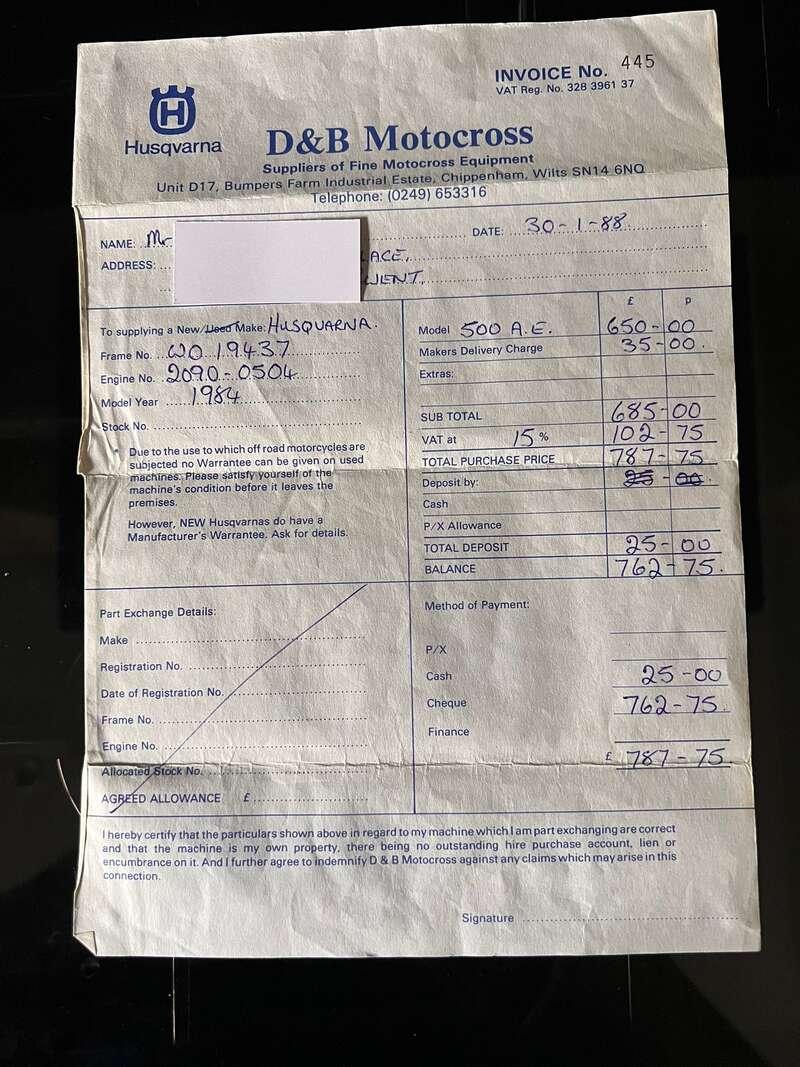 INVOICE No. 445
VAT Reg. No. 328 3961 37
Husqvarna
D&B Motocross
Suppliers of Fine Motocross Equipment
Unit D17, Bumpers Farm Industrial Estate, Chippenham, Wilts SN14 6NQ
Telephone: (0249) 653316
NAME: Mr. DATE: 30-1-88
ADDRESS: LACE,
WENT,
£ p
To supplying a New/Used Make: HUSQUARNA.
Frame No. WO 19437
Engine No. 2090-0504
Model Year 1984
Stock No.
Due to the use to which off road motorcycles are
subjected no Warrantee can be given on used
machines. Please satisfy yourself of the
machine's condition before it leaves the
premises.
However, NEW Husqvarnas do have a
Manufacturer's Warrantee. Ask for details.
Model 500 A.E. 650-00
Makers Delivery Charge 35-00.
Extras:
SUB TOTAL 685-00
VAT at 15 % 102-75
TOTAL PURCHASE PRICE 787-75
Deposit by: 25-00.
Cash
P/X Allowance
TOTAL DEPOSIT 25-00
BALANCE 762-75.
Part Exchange Details:
Make
Registration No.
Date of Registration No.
Frame No.
Engine No.
Allocated Stock No.
AGREED ALLOWANCE £
Method of Payment:
P/X
Cash 25-00
Cheque 762-75.
Finance
£ 787-75
I hereby certify that the particulars shown above in regard to my machine which I am part exchanging are correct
and that the machine is my own property, there being no outstanding hire purchase account, lien or
encumbrance on it. And I further agree to indemnify D & B Motocross against any claims which may arise in this
connection.
Signature